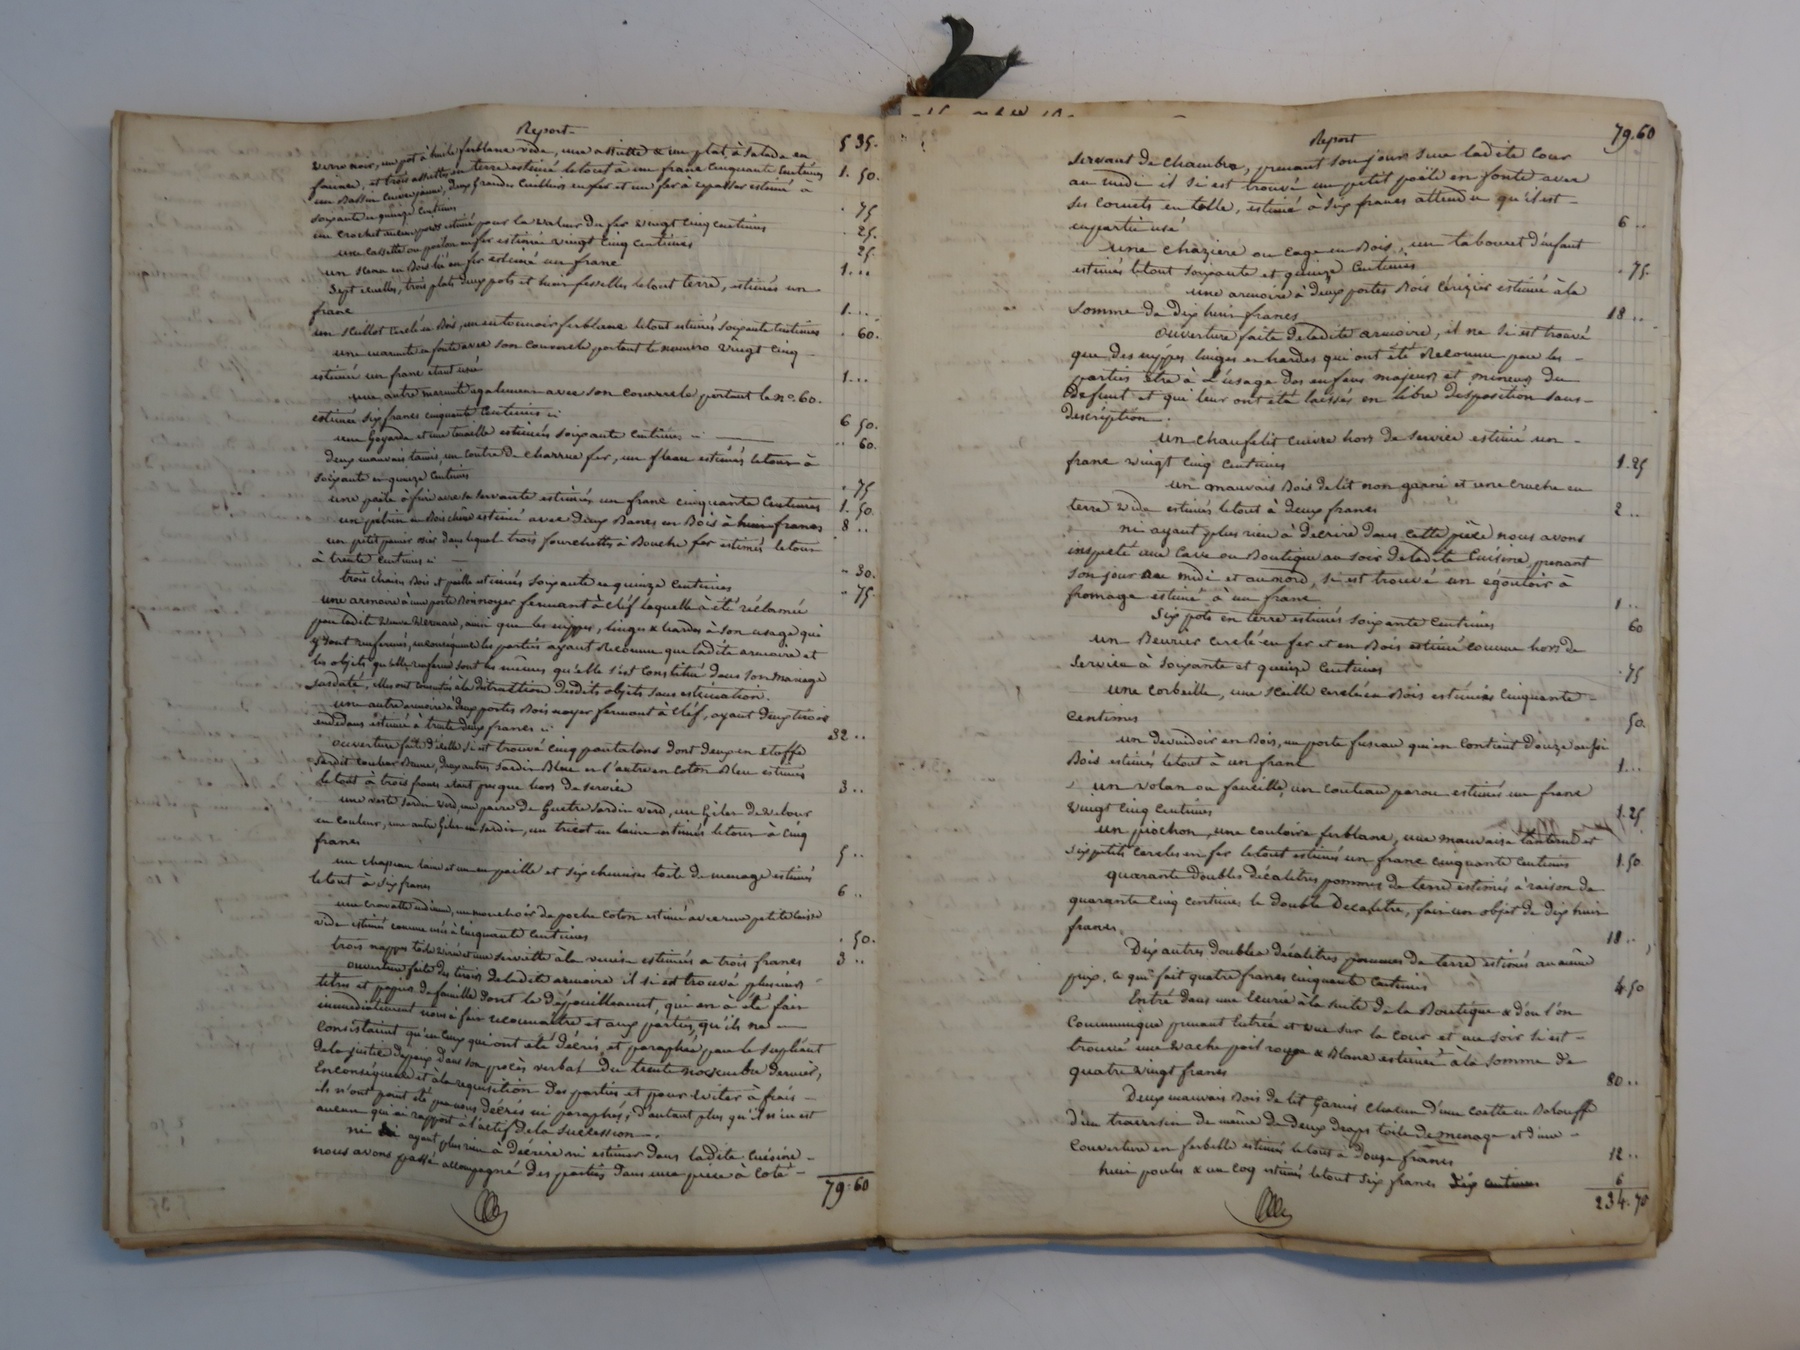 Report 5 35.
verre noir, un pot à huile ferblanc vide, une assiette & un plat à salade en
faience, et trois assiettes en terre estimés le tout à un franc cinquante centimes 1. 50.
un Bassin cuivre jaune, deux grandes cuillers en fer et un fer à repasser estimé à
soixante et quinze centimes . 75
un crochet estimé pour la valeur du fer vingt cinq centimes . 25.
une cassette ou poelon en fer estimée vingt cinq centimes 25.
un Seau en Bois lié en fer estimé un franc 1...
Sept écuelles, trois plats deux pots et huit fesselles le tout terre, estimés un
franc 1...
un Seillot cerclé en Bois, un entonnoir ferblanc le tout estimés soixante centimes . 60.
une marmite en fonte avec son couvercle portant le numéro vingt cinq
estimée un franc étant usée 1...
une autre marmite également avec son couvercle portant le no. 60.
estimée six francs cinquante centimes 6 50.
une Goyarde et une tenaille estimées soixante centimes .. 60.
deux mauvais tamis, un coutre de charrue fer, un fleau estimés le tout à
soixante et quinze centimes . 75
une poële à frire avec sa servante estimées un franc cinquante centimes 1. 50.
un pétrin en Bois chêne estimé avec deux Bancs en Bois à huit francs 8 ..
un petit panier osier dans lequel trois fourchettes à Bouche fer estimés le tout
à trente centimes .. 30.
trois chaises Bois et paille estimées soixante et quinze centimes .. 75.
une armoire à une porte Bois noyer fermant à cléf laquelle à été réclamée
par ladite veuve Bernard, ainsi que les nippes, linges & hardes à son usage qui
y sont renfermés, en conséquence les parties ayant reconnu que ladite armoire et
les objets qu'elle renferme sont les mêmes qu'elle s'est constitué dans son mariage
susdaté, elles ont consenties à la distraction desdits objets sans estimation.
une autre armoire à deux portes Bois noyer fermant à cléf, ayant deux tiroirs
en dedans estimée à trente deux francs 32 ..
ouverture faite d'icelle s'i est trouvé cinq pantalons dont deux en Etoffe
Sardit couleur Brune, deux autres Sardit Bleu et l'autre en coton Bleu estimés
le tout à trois francs étant presque hors de service 3 ..
une veste Sardin verd, une paire de Guetre Sardin verd, un Gilet de velour
en couleur, une autre Gilet en Sardin, un tricot en laine estimés le tout à cinq
francs 5 ..
un chapeau laine et un en paille et six chemises toile de menage estimés
le tout à six francs 6 ..
une cravatte indienne, un mouchoir de poche coton estimé avec une petite caisse
vide estimé comme usés à cinquante centimes . 50.
trois nappes toile et une serviette à la venise estimées a trois francs 3 ..
ouverture faite des tiroirs de ladite armoire il s'i est trouvé plusieurs
titres et papiers de famille dont le dépouillement, qui en à été fait
immédiatement nous à fait reconnaitre et aux parties, qu'ils ne
consistaient qu'en ceux qui ont été décris, et paraphés par le supléant
de la justice depaix dans son procès verbal du trente novembre dernier,
En conséquence et à la requisition des parties et pour eviter à frais
ils n'ont point été par nous décris ni paraphés, d'autant plus qu'il n'en est
aucun qui ai rapport à l'actif de la succession.
ni ayant plus rien à décrire ni estimer dans ladite cuisine
nous avons passé accompagné des parties dans une pièce à coté
79. 60
Report 79. 60
servant de chambre, prenant son jour sur ladite Cour
au midi il s'i est trouvé un petit poële en fonte avec
ses cornets en tolle, estimé à six francs attendu qu'il est
en partie usé 6 ..
une chaziere ou cage en Bois, un tabouret d'enfant
estimés le tout soixante et quinze centimes . 75.
une armoire à deux portes Bois Cérizier estimée à la
somme de dix huit francs 18 ..
ouverture faite de ladite armoire, il ne s'i est trouvé
que des nippes linges et hardes qui ont été reconnu par les
parties être à l'usage des enfans majeurs et mineurs du
defunt et qui leur ont été laissés en libre disposition sans
description.
un chaufelit cuivre hors de service estimé un
franc vingt cinq centimes 1.25
un mauvais Bois de lit non garni et une cruche en
terre vide estimés le tout à deux francs 2 ..
ni ayant plus rien à décrire dans cette pièce nous avons
inspecté une Cave ou Boutique au soir de ladite cuisine, prenant
son jour au midi et au nord, s'i est trouvé un égoutoir à
fromage estimé à un franc 1 ..
Six pots en terre estimés soixante centimes 60
un Beurier cerclé en fer et en Bois estimé comme hors de
service à soixante et quinze centimes . 75
une corbeille, une seille cerclée en Bois estimées cinquante
centimes 50.
un devuidoir en Bois, un porte fuseau qui en contient douze aussi
Bois estimés le tout à un franc 1...
un volan ou faucille, un couteau parou estimés un franc
vingt cinq centimes 1.25.
un piochon, une couloire ferblanc, une mauvaise lanterne et
six petits cercles en fer le tout estimés un franc cinquante centimes 1.50
quarante doubles décalitres pommes de terre estimés à raison de
quarante cinq centimes le double Décalitre, fait un objet de dix huit
francs, 18 ..
Dix autres doubles décalitres pommes de terre estimés au même
prix, ce qui fait quatre francs cinquante centimes 4.50
Entré dans une Ecurie à la suite de la Boutique & d'ou l'on
communique prenant Entrée et vue sur la cour et au soir s'i est
trouvé une vache poil rouge & Blanc estimée à la somme de
quatre vingt francs 80 ..
Deux mauvais Bois de lit Garnis chacun d'une coette en Balouffe
d'un traversin de même de deux draps toile de menage et d'une
couverture en estimés le tout à douze francs 12 ..
huit poules & un coq estimés le tout six francs 6
234. 70